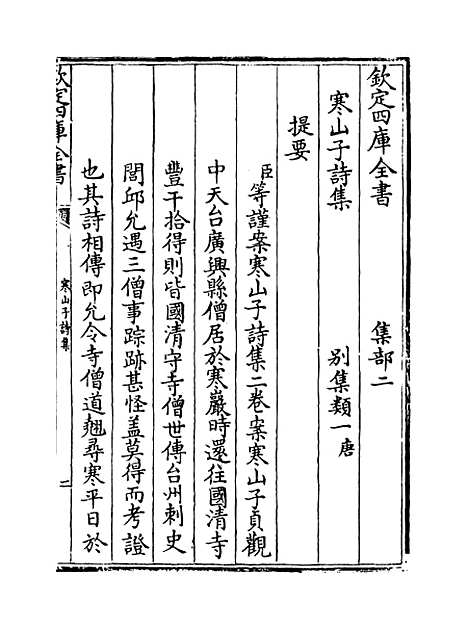 欽定四庫全書　　　集部二
寒山子詩集　　　別集類一唐
提要
臣等謹案寒山子詩集二卷案寒山子貞觀
中天台廣興縣僧居於寒巖時還往國清寺
豐干拾得則皆國清守寺僧世傳台州刺史
閭邱允遇三僧事踪跡甚怪盖莫得而考證
也其詩相傳即允令寺僧道翹尋寒平日於
欽定四庫全書
寒山子詩集